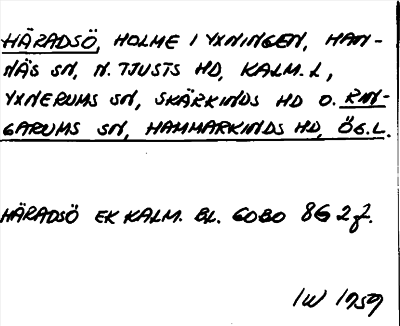 HÄRADSÖ, HOLME I YXNINGEN, HAN-
NÄS SN, N. TJUSTS HD, KALM. L,
YXNERUMS SN, SKÄRKINDS HD O. RIN-
GARUMS SN, HAMMARKINDS HD, ÖG.L.
HÄRADSÖ EK KALM. BL. GOBO 8G 2f.
IW 1959